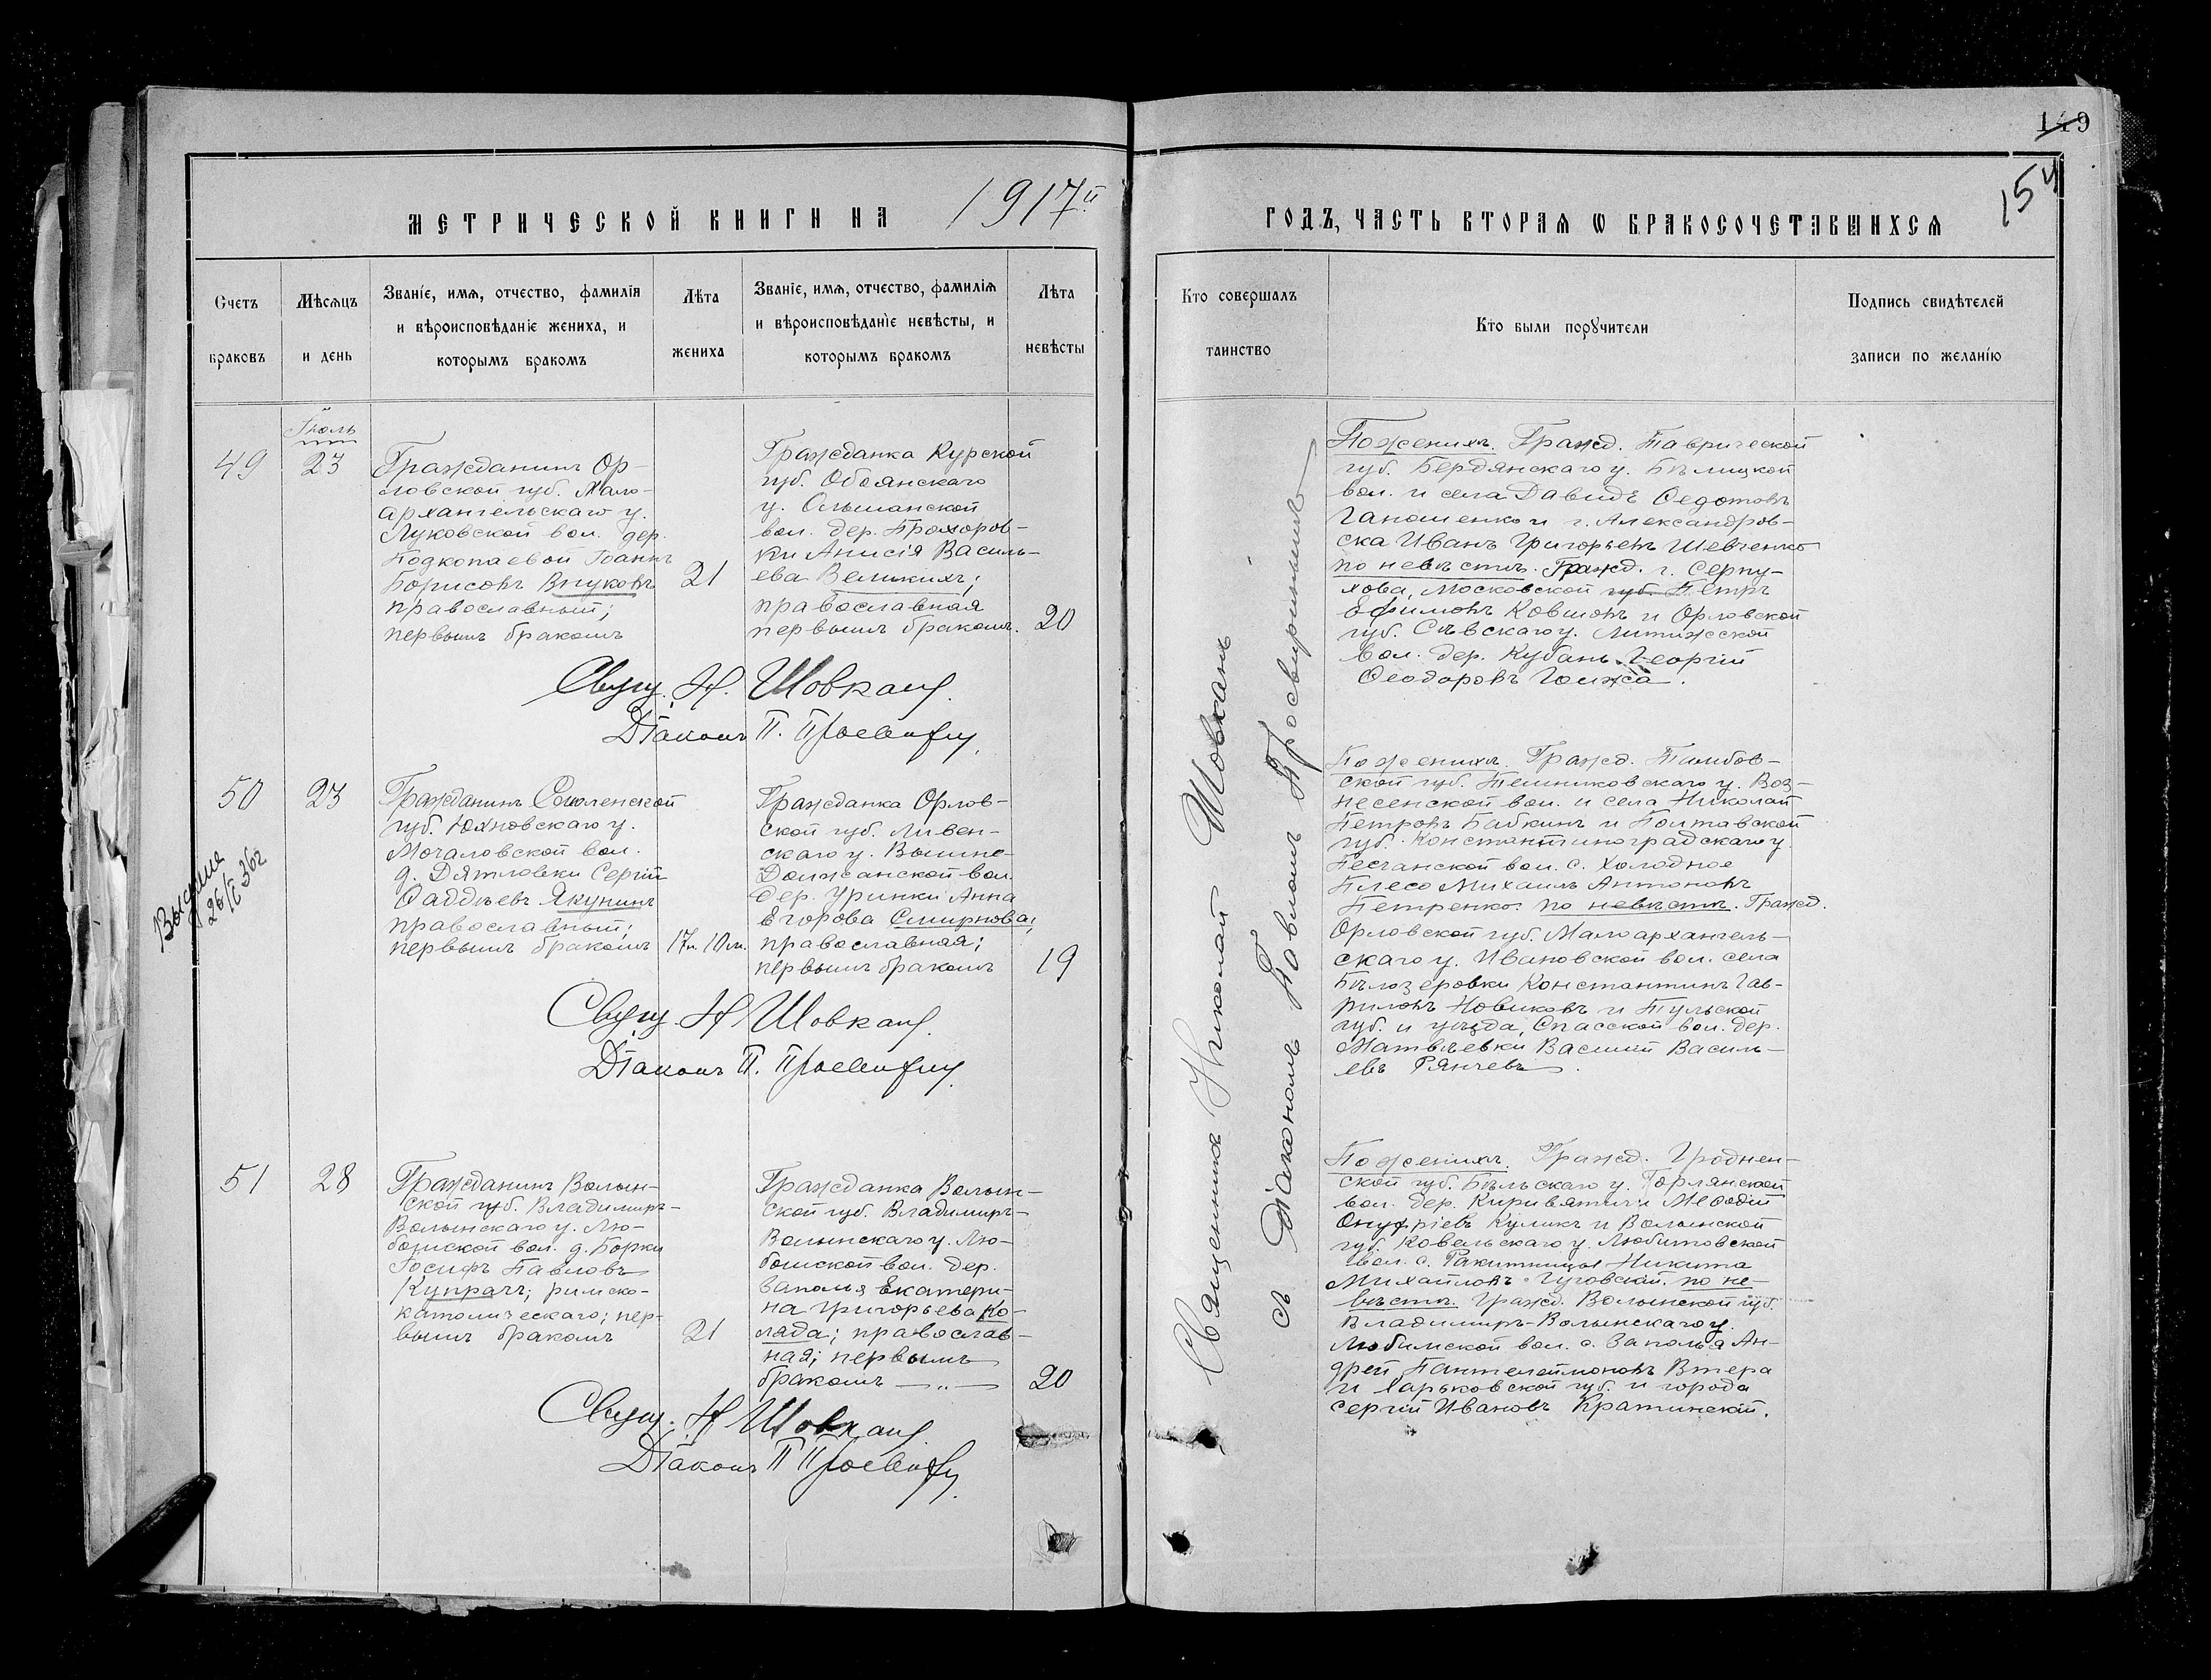 149
154
МЕТРИЧЕСКОЙ КНИГИ НА 1917й
ГОДЪ, ЧАСТЬ ВТОРАЯ Ѡ БРАКОСОЧЕТАВШИХСЯ
Счетъ
браковъ
Мѣсяцъ
и день
Званіе, имя, отчество, фамилія
и вѣроисповѣданіе жениха, и
которымъ бракомъ
Лѣта
жениха
Званіе, имя, отчество, фамилія
и вѣроисповѣданіе невѣсты, и
которымъ бракомъ
Лѣта
невѣсты
Кто совершалъ
таинство
Кто были поручители
Подпись свидѣтелей
записи по желанію
Іюль
49
23
Гражданинъ Ор-
ловской губ. Мало-
архангельскаго у.
Луковской вол. дер.
Подкопаевой Іоаннъ
Борисовъ Внуковъ
православный;
первымъ бракомъ
21
Гражданка Курской
губ. Обоянскаго
у. Ольшанской
вол. дер. Прохоров-
ки Анисія Василь-
ева Великихъ;
православная
первымъ бракомъ.
20
Свящ. Н. Шовкан
Діаконъ П.
По женихѣ. Гражд. Таврической
губ. Бердянскаго у. Бѣлицкой
вол. и села Давидъ Ѳедотовъ
Гапоненко и г. Александров-
ска Иванъ Григорьевъ Шевченко
по невѣстѣ. Гражд. г. Серпу-
хова, Московской губ. Петръ
Ефимовъ Ковшовъ и Орловской
губ. Сѣвскаго у. Литижской
вол. дер. Кубань Георгій
Ѳеодоровъ
50
23
Гражданинъ Смоленской
губ. Юхновскаго у.
Мочаловской вол.
д. Дятловки Сергій
Ѳаддѣевъ Якунинъ
православный;
первымъ бракомъ
17л. 10м.
Гражданка Орлов-
ской губ. Ливен-
скаго у. Вышне-
Должанской вол.
дер. Уринки Анна
Егорова Смирнова;
православная;
первымъ бракомъ
19
26/I 36г
Свящ. Н Шовкан
Діаконъ П.
По женихѣ. Гражд. Тамбов-
ской губ. Темниковскаго у. Воз-
несенской вол. и села Николай
Петровъ Бабкинъ и Полтавской
губ. Константиноградскаго у.
Песчанской вол. с. Холодное
Плесо Михаилъ Антоновъ
Петренко. по невѣстѣ. Гражд.
Орловской губ. Малоархангель-
скаго у. Ивановской вол. села
Бѣлозеровки Константинъ Гав-
риловъ Новиковъ и Тульской
губ. и уѣзда, Спасской вол. дер.
Матвѣевки Василий Василь-
евъ Рянчевъ.
51
28
Гражданинъ Волын-
ской губ. Владимиръ-
Волынскаго у. Лю-
бомской вол. д. Борки
Іосифъ Павловъ
Купрачъ; римско-
католическаго; пер-
вымъ бракомъ
21
Гражданка Волын-
ской губ. Владимиръ-
Волынскаго у. Лю-
бомской вол. дер.
Заполья Екатери-
на Григорьева Ко-
ляда; православ-
ная; первымъ
бракомъ — „ —
20
Свящ. Н Шовкан
Діаконъ П
По женихѣ. Гражд. Гроднен-
ской губ. Бѣльскаго у. Горлянской
вол. дер. Меѳодій
Онуфріевъ Куликъ и Волынской
губ. Ковельскаго у. Любитовской
вол. с. Никита
Михайловъ Гуговскій. по не-
вѣстѣ. Гражд. Волынской губ.
Владимиръ-Волынскаго у.
Любимской вол. с. Заполья Ан-
дрей Пантелеймоновъ Втера
и Харьковской губ. и города
Сергій Ивановъ Кратинскій.
Священникъ Николай Шовканъ
съ Діакономъ Павломъ Просвирнинымъ